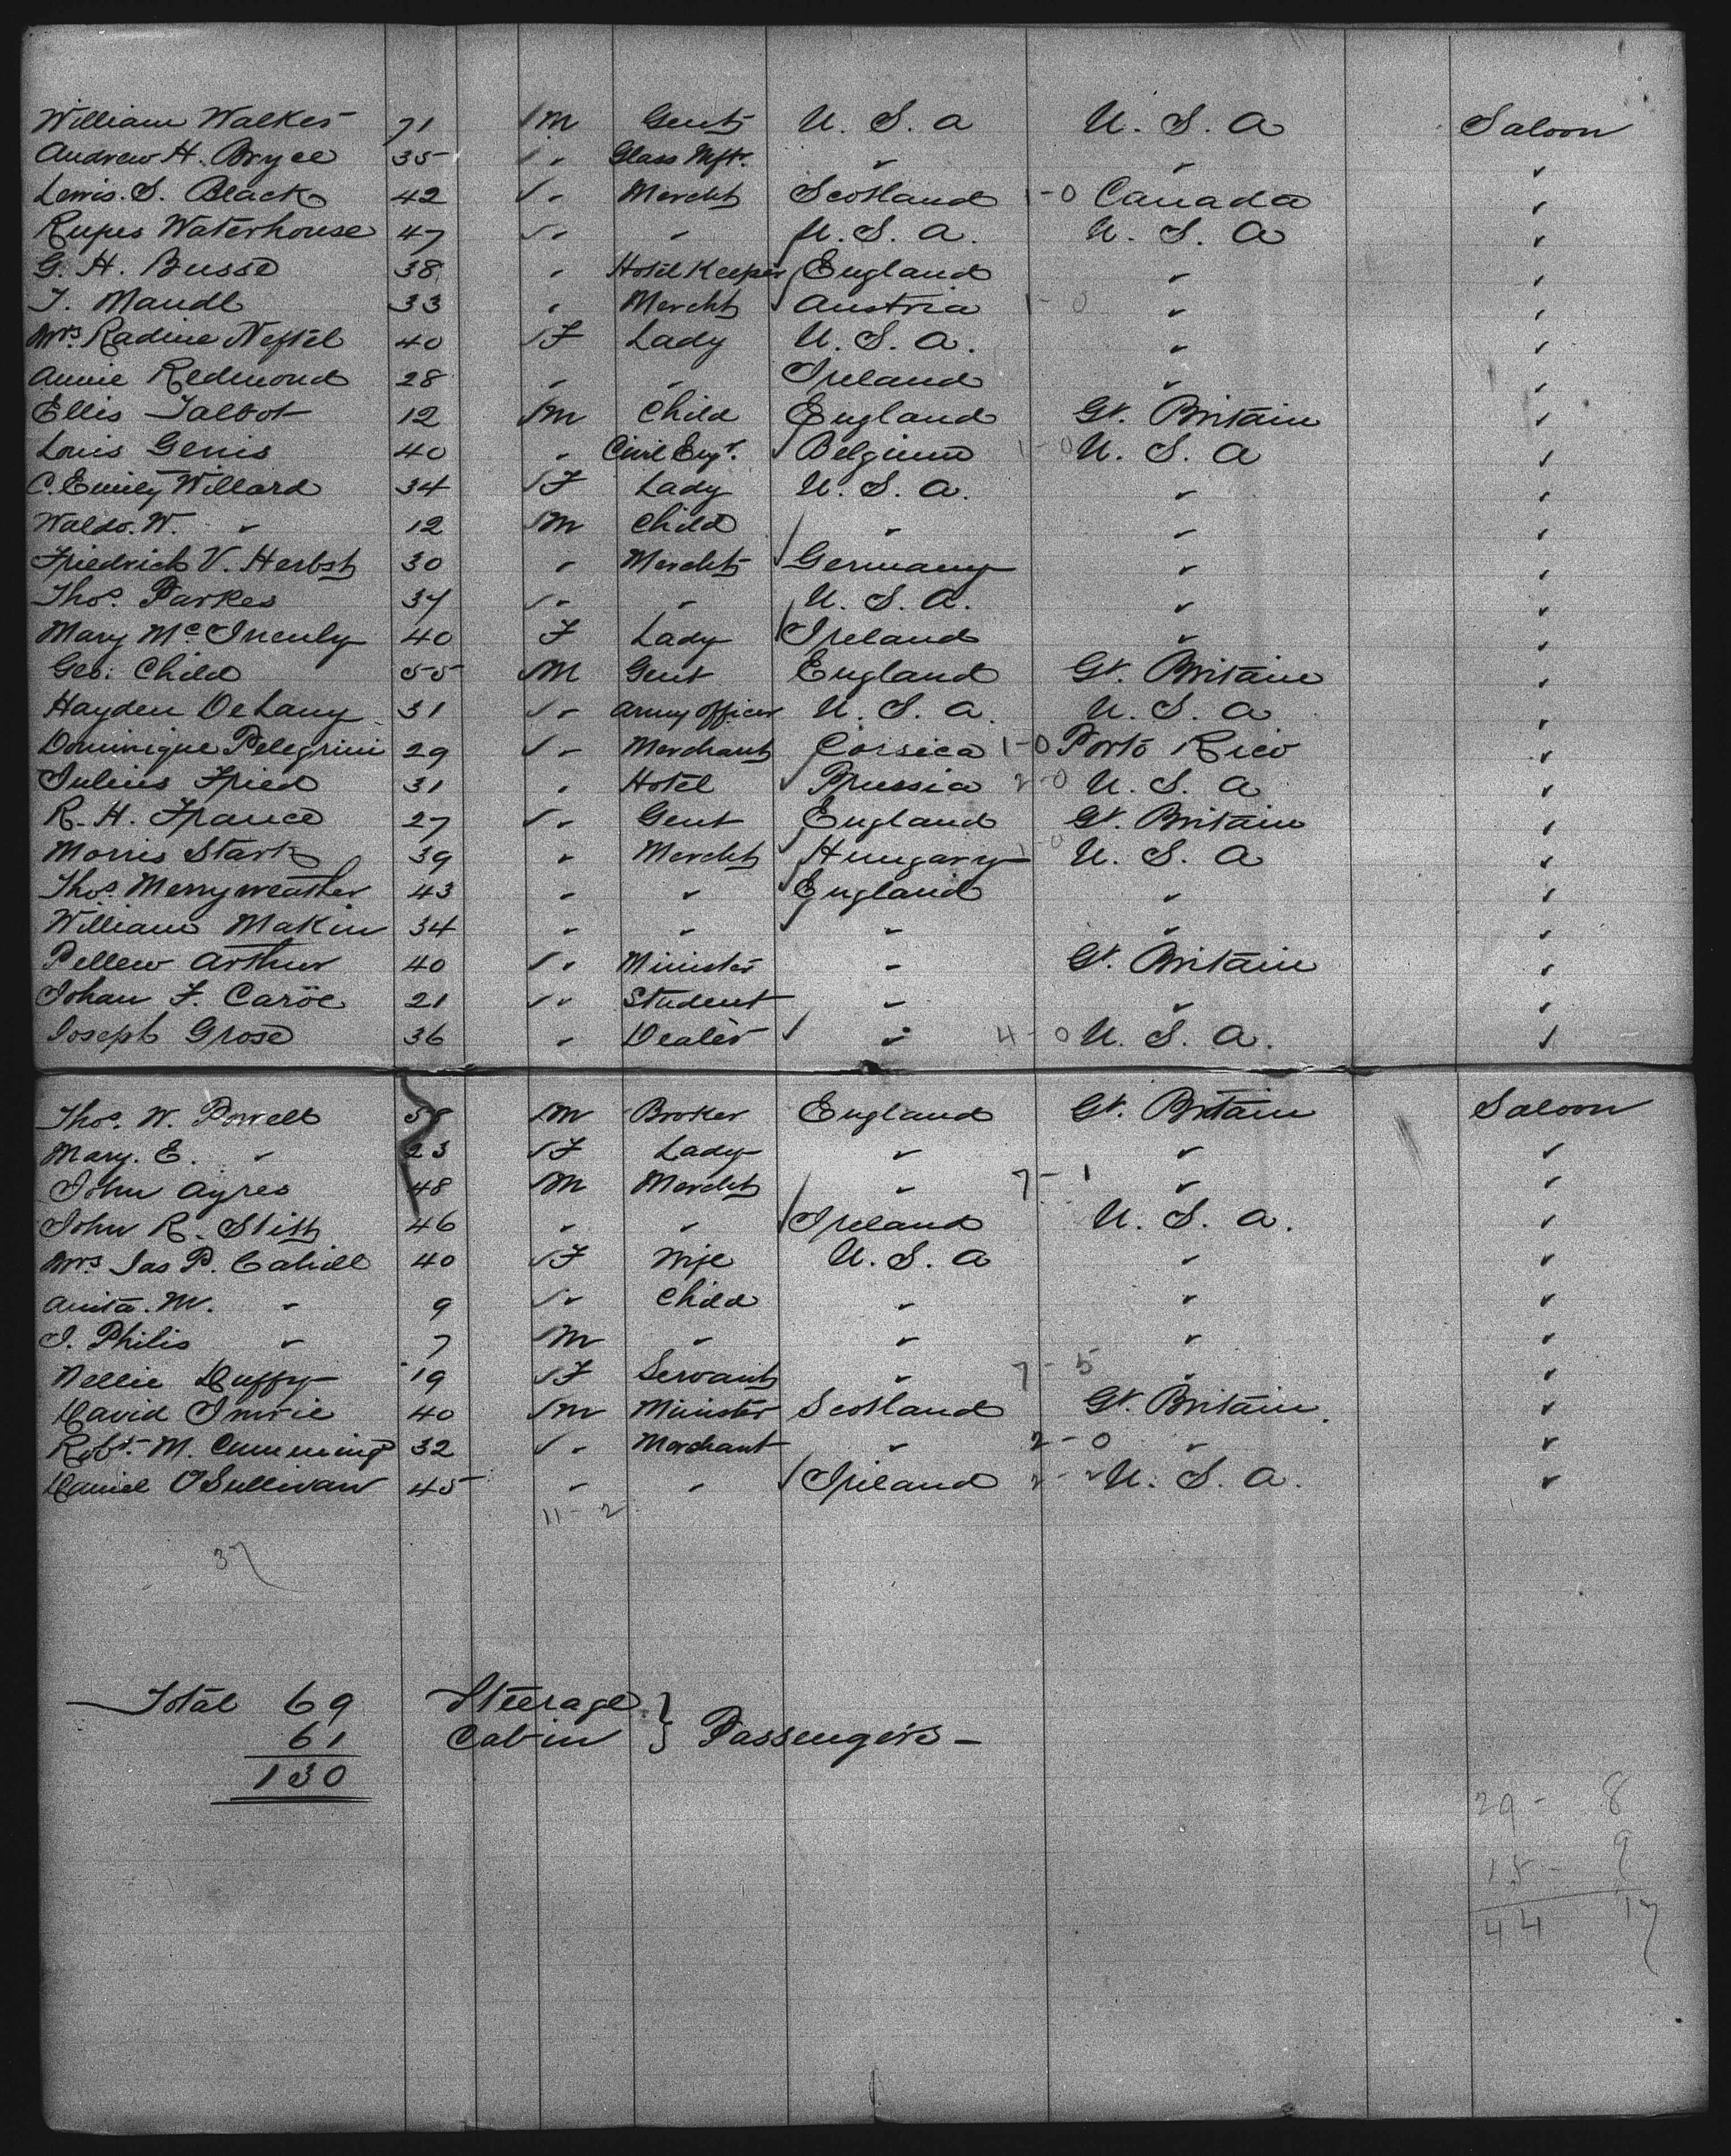 William Walker 71 M Gent U. S. A U. S. A Saloon
Andrew H. Bryce 35 " Glass Mftr. " " "
Lewis. S. Black 42 " Mercht Scotland 1-0 Canada "
Rufus Waterhouse 47 " " U. S. A. U. S. A "
G. H. Busse 38 " Hotel Keeper England " "
J. Mandl 33 " Mercht Austria 1-0 " "
Mrs. Radine Neftel 40 F Lady U. S. A. " "
Annie Redmond 28 " " Ireland " "
Ellis Talbot 12 M Child England Gt. Britain "
Louis Genis 40 " Civil Engr. Belgium 1-0 U. S. A "
C. Emily Willard 34 F Lady U. S. A. " "
Waldo. W. " 12 M Child " " "
Friedrich V. Herbst 30 " Mercht Germany " "
Thos. Parkes 37 " " U. S. A. " "
Mary Mc 40 F Lady Ireland " "
Geo: Child 55 M Gent England Gt. Britain "
Hayden DeLany 31 " Army Officer U. S. A. U. S. A "
Dominique Pelegrini 29 " Merchant Corsica 1-0 Porto Rico "
Julius Fried 31 " Hotel Prussia 2-0 U. S. A "
R. H. France 27 " Gent England Gt. Britain "
Morris Stark 39 " Mercht Hungary 1-0 U. S. A "
Thos. Merryweather 43 " " England " "
William Makin 34 " " " " "
Pellew Arthur 40 " Minister " Gt. Britain "
Johan F. Caröe 21 " Student " " "
Joseph Grose 36 " Dealer " 4-0 U. S. A. "
Thos. W. Powell 58 M Broker England Gt. Britain Saloon
Mary. E. " 23 F Lady " " "
John Ayres 48 M Mercht " 7-1 " "
John R. Stitt 46 " " Ireland U. S. A. "
Mrs Jas P. Cahill 40 F Wife U. S. A " "
Anita. M. " 9 " Child " " "
J. Philis " 7 M " " " "
Nellie Duffy 19 F Servant " 7-5 " "
David Imrie 40 M Minister Scotland Gt. Britain. "
Robt. M. Cumming 32 " Merchant " 2-0 " "
Daniel O'Sullivan 45 " " Ireland 2-2 U. S. A. "
11-2
37
Total 69 Steerage } Passengers -
61 Cabin
130
29- 8
15- 9
44 17